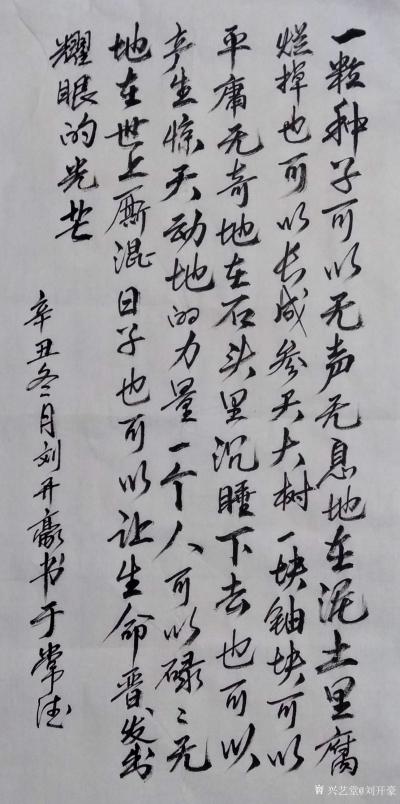 一粒种子可以无声无息地在泥土里腐
烂掉也可以长成参天大树一块铀块可以
平庸无奇地在石头里沉睡下去也可以
产生惊天动地的力量一个人可以碌〻无
地在世上厮混日子也可以让生命晋发出
耀眼的光芒
辛丑冬月刘开豪书于常德
兴艺堂@刘开豪